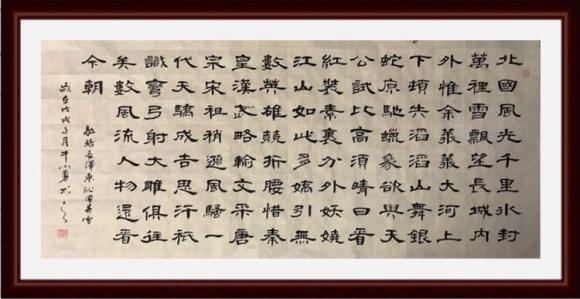 北國風光千里冰封
萬裡雪飄望長城內
外惟余莽莽大河上
下頓失滔滔山舞銀
蛇原馳蠟象欲與天
公試比高須晴日看
紅裝素裹分外妖嬈
江山如此多嬌引無
數英雄競折腰惜秦
皇漢武略輸文采唐
宗宋祖稍遜風騷一
代天驕成吉思汗祇
識彎弓射大雕俱往
矣數風流人物還看
今朝
敬錄毛澤東沁園春雪
歲在戊戌子月牛小勇